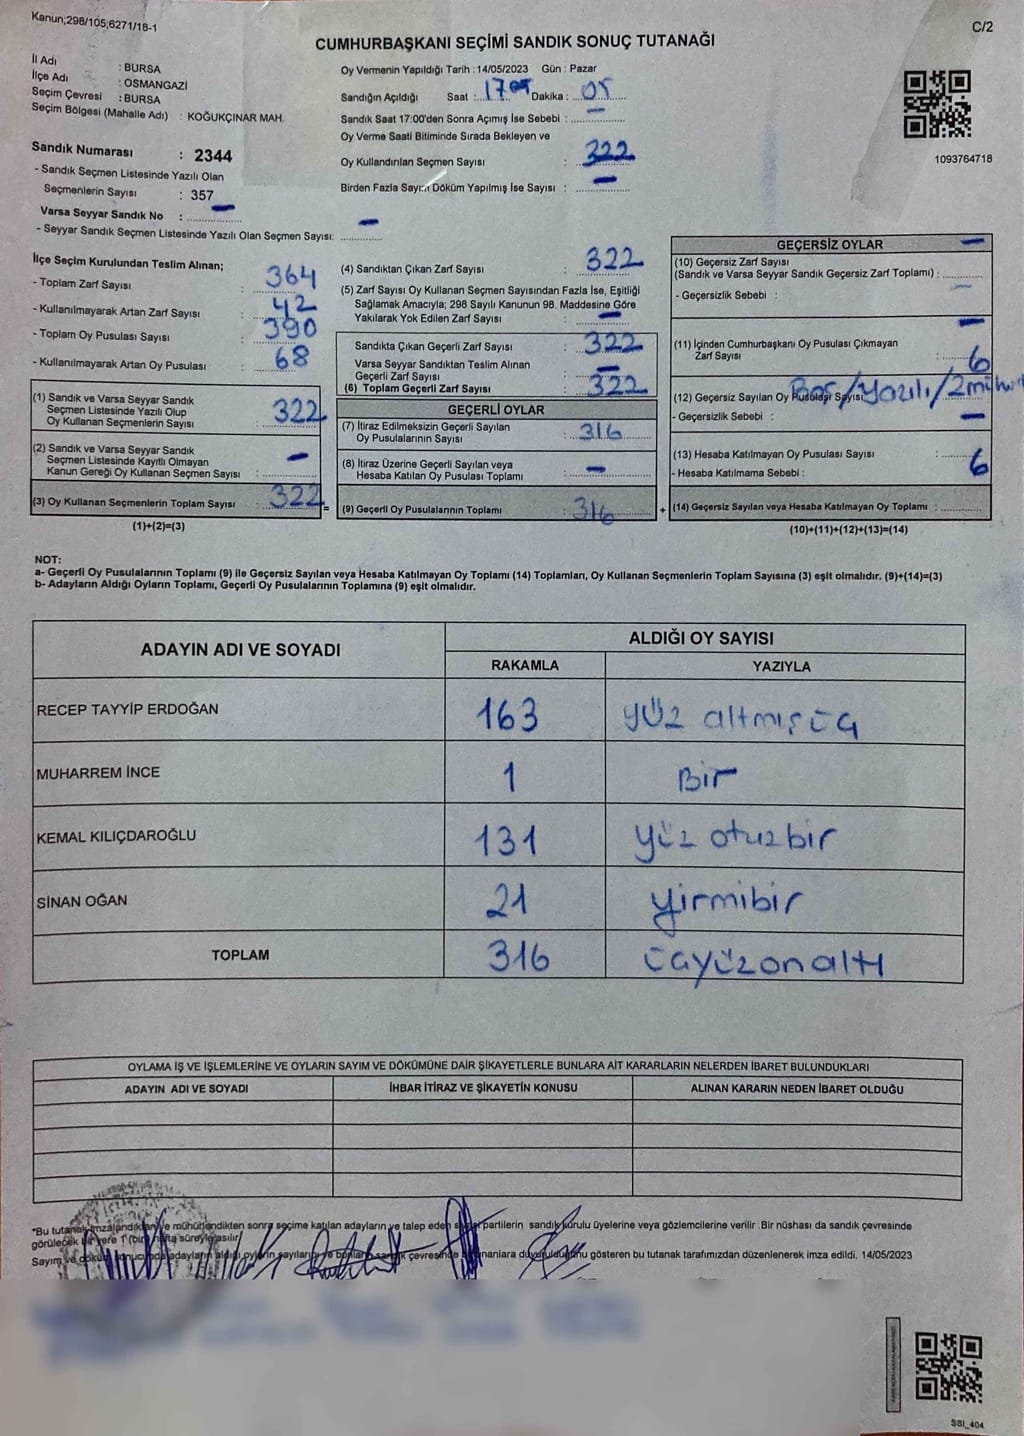 Kanun;298/105;6271/18-1
C/2
CUMHURBAŞKANI SEÇİMİ SANDIK SONUÇ TUTANAĞI
İl Adı : BURSA
İlçe Adı : OSMANGAZİ
Seçim Çevresi : BURSA
Seçim Bölgesi (Mahalle Adı) : KOĞUKÇINAR MAH.
Oy Vermenin Yapıldığı Tarih : 14/05/2023 Gün : Pazar
Sandığın Açıldığı Saat : 17 Dakika : 05
Sandık Saat 17:00'den Sonra Açımış İse Sebebi : –
Oy Verme Saati Bitiminde Sırada Bekleyen ve
Oy Kullandırılan Seçmen Sayısı : 322
Birden Fazla Sayım Döküm Yapılmış İse Sayısı : –
1093764718
Sandık Numarası : 2344
- Sandık Seçmen Listesinde Yazılı Olan
Seçmenlerin Sayısı : 357
Varsa Seyyar Sandık No : –
- Seyyar Sandık Seçmen Listesinde Yazılı Olan Seçmen Sayısı: –
İlçe Seçim Kurulundan Teslim Alınan;
- Toplam Zarf Sayısı : 364
- Kullanılmayarak Artan Zarf Sayısı : 42
- Toplam Oy Pusulası Sayısı : 390
- Kullanılmayarak Artan Oy Pusulası : 68
(1) Sandık ve Varsa Seyyar Sandık
Seçmen Listesinde Yazılı Olup
Oy Kullanan Seçmenlerin Sayısı : 322
(2) Sandık ve Varsa Seyyar Sandık
Seçmen Listesinde Kayıtlı Olmayan
Kanun Gereği Oy Kullanan Seçmen Sayısı : –
(3) Oy Kullanan Seçmenlerin Toplam Sayısı : 322
(1)+(2)=(3)
(4) Sandıktan Çıkan Zarf Sayısı : 322
(5) Zarf Sayısı Oy Kullanan Seçmen Sayısından Fazla İse, Eşitliği
Sağlamak Amacıyla; 298 Sayılı Kanunun 98. Maddesine Göre
Yakılarak Yok Edilen Zarf Sayısı : –
Sandıkta Çıkan Geçerli Zarf Sayısı : 322
Varsa Seyyar Sandıktan Teslim Alınan
Geçerli Zarf Sayısı : –
(6) Toplam Geçerli Zarf Sayısı : 322
GEÇERLİ OYLAR
(7) İtiraz Edilmeksizin Geçerli Sayılan
Oy Pusulalarının Sayısı : 316
(8) İtiraz Üzerine Geçerli Sayılan veya
Hesaba Katılan Oy Pusulası Toplamı : –
= (9) Geçerli Oy Pusulalarının Toplamı : 316 +
GEÇERSİZ OYLAR
(10) Geçersiz Zarf Sayısı –
(Sandık ve Varsa Seyyar Sandık Geçersiz Zarf Toplamı) :
- Geçersizlik Sebebi : –
(11) İçinden Cumhurbaşkanı Oy Pusulası Çıkmayan –
Zarf Sayısı :
(12) Geçersiz Sayılan Oy Pusulası Sayısı : 6
- Geçersizlik Sebebi : Boş/Yazılı/2mühür
(13) Hesaba Katılmayan Oy Pusulası Sayısı : –
- Hesaba Katılmama Sebebi :
(14) Geçersiz Sayılan veya Hesaba Katılmayan Oy Toplamı : 6
(10)+(11)+(12)+(13)=(14)
NOT:
a- Geçerli Oy Pusulalarının Toplamı (9) ile Geçersiz Sayılan veya Hesaba Katılmayan Oy Toplamı (14) Toplamları, Oy Kullanan Seçmenlerin Toplam Sayısına (3) eşit olmalıdır. (9)+(14)=(3)
b- Adayların Aldığı Oyların Toplamı, Geçerli Oy Pusulalarının Toplamına (9) eşit olmalıdır.
ADAYIN ADI VE SOYADI ALDIĞI OY SAYISI
RAKAMLA YAZIYLA
RECEP TAYYİP ERDOĞAN 163 yüz altmışüç
MUHARREM İNCE 1 Bir
KEMAL KILIÇDAROĞLU 131 yüz otuzbir
SİNAN OĞAN 21 yirmibir
TOPLAM 316 üçyüzonaltı
OYLAMA İŞ VE İŞLEMLERİNE VE OYLARIN SAYIM VE DÖKÜMÜNE DAİR ŞİKAYETLERLE BUNLARA AİT KARARLARIN NELERDEN İBARET BULUNDUKLARI
ADAYIN ADI VE SOYADI İHBAR İTİRAZ VE ŞİKAYETİN KONUSU ALINAN KARARIN NEDEN İBARET OLDUĞU
*Bu tutanak imzalandıktan ve mühürlendikten sonra seçime katılan adayların ve talep eden siyasi partilerin sandık kurulu üyelerine veya gözlemcilerine verilir .Bir nüshası da sandık çevresinde
görülecek bir yere 1 (bir) hafta süreyle asılır.
Sayım ve döküm sonucunda adayların aldığı oyların sayılarını ve bunların sandık çevresinde duyurulduğunu gösteren bu tutanak tarafımızdan düzenlenerek imza edildi. 14/05/2023
SSI_404